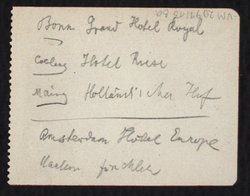 Bonn Grand Hotel Royal
Coblenz Hotel Riese
Mainz Holländischer Hof
Amsterdam Hotel Europe
Haarlem